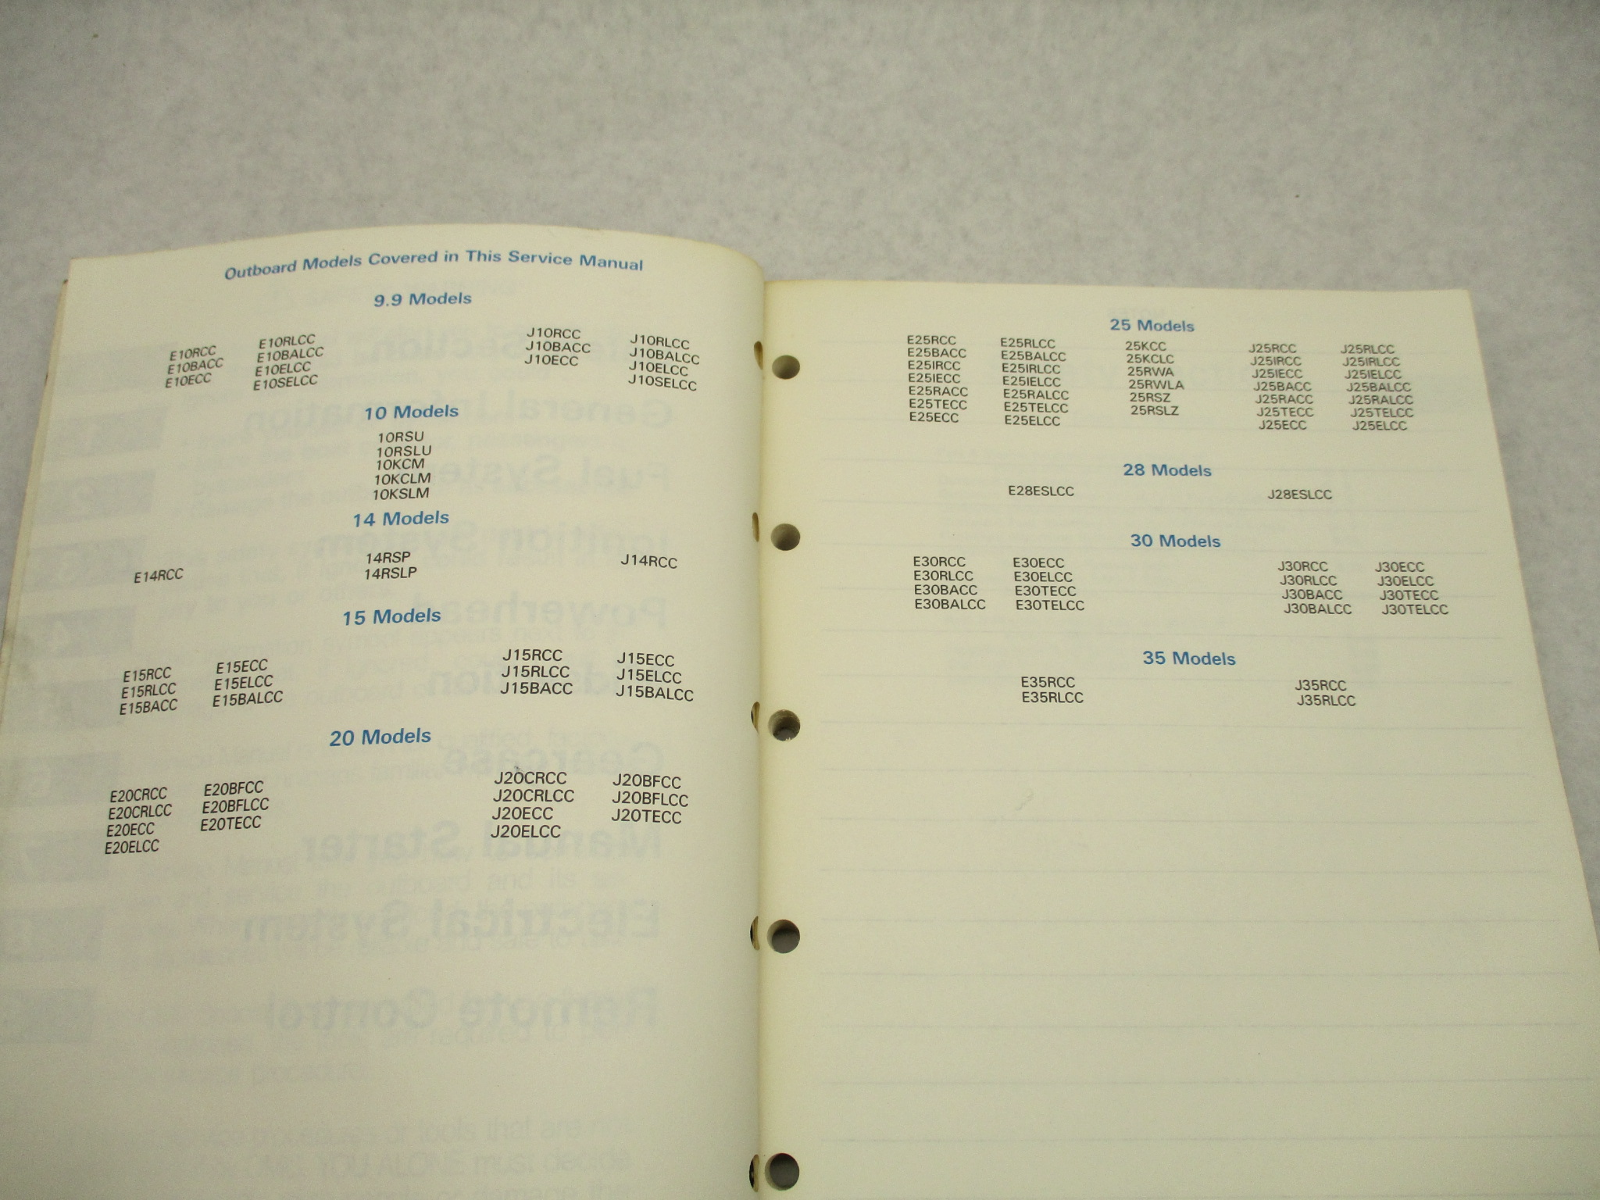 Outboard Models Covered in This Service Manual
9.9 Models
E10RCC E10RLCC J10RCC J10RLCC
E10BACC E10BALCC J10BACC J10BALCC
E10ECC E10ELCC J10ECC J10ELCC
E10SELCC J10SELCC
10 Models
10RSU
10RSLU
10KCM
10KCLM
10KSLM
14 Models
14RSP J14RCC
E14RCC 14RSLP
15 Models
E15RCC E15ECC J15RCC J15ECC
E15RLCC E15ELCC J15RLCC J15ELCC
E15BACC E15BALCC J15BACC J15BALCC
20 Models
E20CRCC E20BFCC J20CRCC J20BFCC
E20CRLCC E20BFLCC J20CRLCC J20BFLCC
E20ECC E20TECC J20ECC J20TECC
E20ELCC J20ELCC
25 Models
E25RCC E25RLCC 25KCC J25RCC J25RLCC
E25BACC E25BALCC 25KCLC J25IRCC J25IRLCC
E25IRCC E25IRLCC 25RWA J25IECC J25IELCC
E25IECC E25IELCC 25RWLA J25BACC J25BALCC
E25RACC E25RALCC 25RSZ J25RACC J25RALCC
E25TECC E25TELCC 25RSLZ J25TECC J25TELCC
E25ECC E25ELCC J25ECC J25ELCC
28 Models
E28ESLCC J28ESLCC
30 Models
E30RCC E30ECC J30RCC J30ECC
E30RLCC E30ELCC J30RLCC J30ELCC
E30BACC E30TECC J30BACC J30TECC
E30BALCC E30TELCC J30BALCC J30TELCC
35 Models
E35RCC J35RCC
E35RLCC J35RLCC